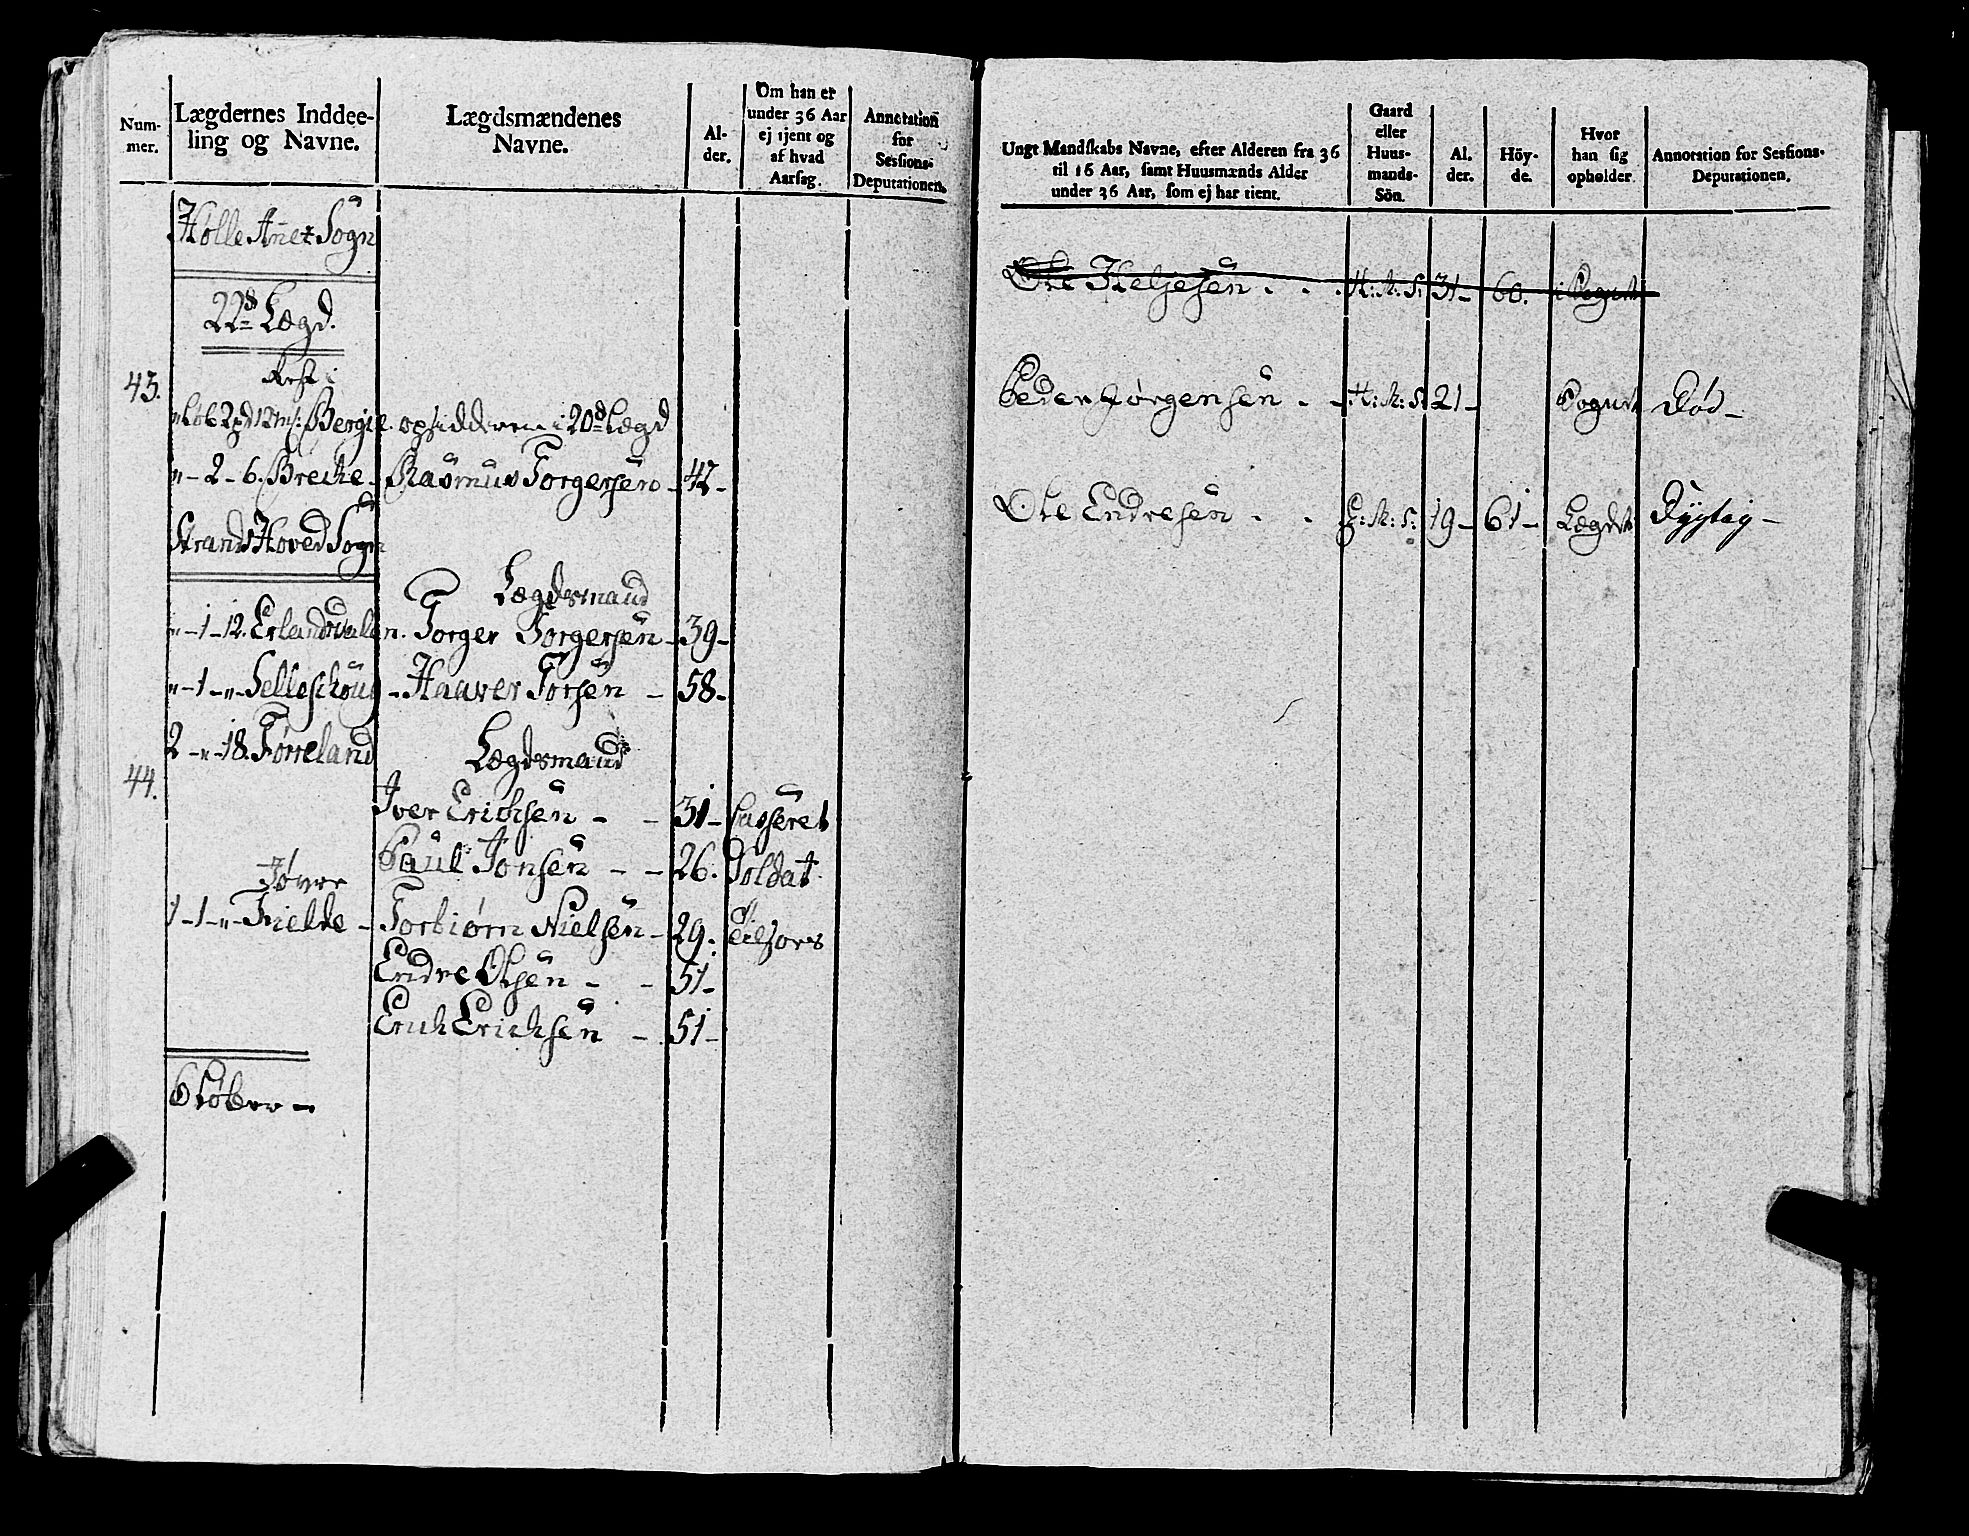 Num-
mer.
Lægdernes Inddee-
ling og Navne.
Lægdsmændenes
Navne.
Al-
der.
Om han er
under 36 Aar
ej tjent og
af hvad
Aarsag.
Annotation
for
Sessions-
Deputationen.
Holle Anex Sogn
22de Lægd.
Rest
43.
Bergie opsidderen i 20de Lægd
"-2-6. Breche - Rasmus Torgersen - 42-
Strands Hoved Sogn
Lægdsmand
"-1-12. Erlandsdalen. Torger Torgersen - 39-
"-1-"- Selleschoug - Haaver Torsen - 58-
2-"-18. Tørreland Lægdsmand
44.
Iver Erichsen - - 31- Casseret
Paul Jonsen - - 26. Soldat
Jøvre
1-1-"- Fielde - Torbiørn Nielsen - 29.
Endre Olsen - - 51-
Erich Erichsen - 51-
6 Løber -
Ungt Mandskabs Navne, efter Alderen fra 36
til 16 Aar, samt Huusmænds Alder
under 36 Aar, som ej har tient.
Gaard
eller
Huus-
mands-
Sön.
Al-
der.
Höy-
de.
Hvor
han sig
opholder.
Annotation for Sessions-
Deputationen.
Ole Heljesen . . . H: M: S: 31- 60. i Sognet
Peder Jørgensen . - H: M: S: 21- Sognet Død-
Ole Endresen . . G: M: S: 19- 61- Lægdet Dygtig-